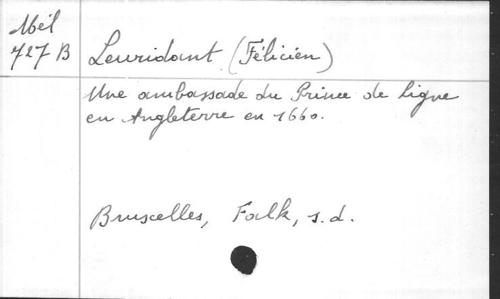 Mél
727 B
Leuridant (Félicien)
Une ambassade du Prince de Ligne
en Angleterre en 1660.
Bruxelles, Falk, s.d.